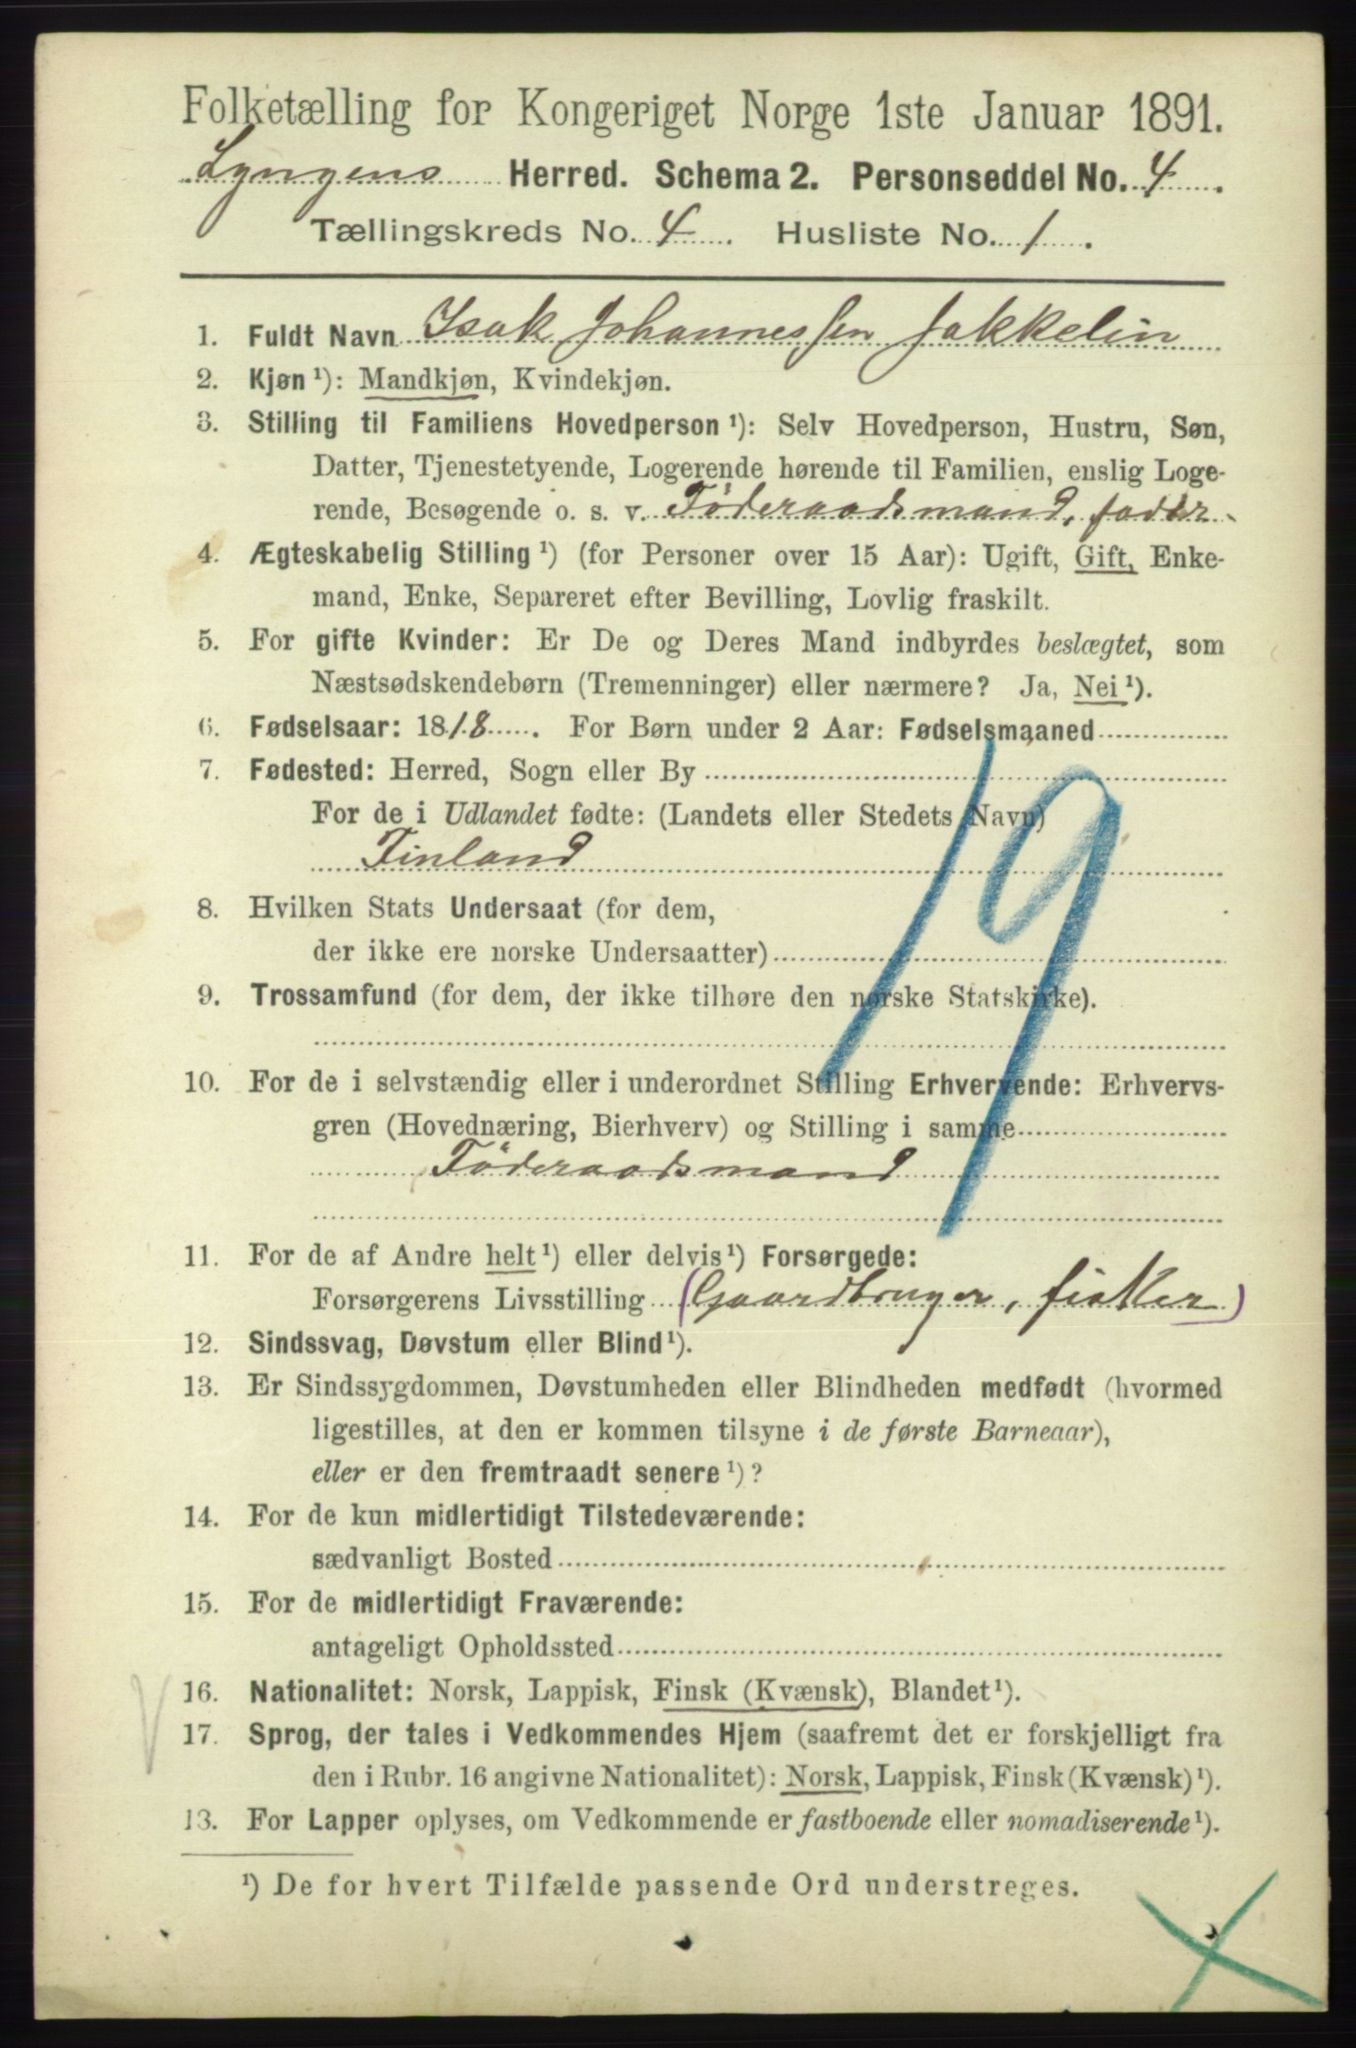 Folketælling for Kongeriget Norge 1ste Januar 1891.
Lyngens Herred. Schema 2. Personseddel No. 4.
Tællingskreds No. 4. Husliste No. 1.
1. Fuldt Navn Isak Johannessen Jakkelin
2. Kjøn ¹): Mandkjøn, Kvindekjøn.
3. Stilling til Familiens Hovedperson ¹): Selv Hovedperson, Hustru, Søn,
Datter, Tjenestetyende, Logerende hørende til Familien, enslig Loge-
rende, Besøgende o. s. v. Föderaadsmand, fader
4. Ægteskabelig Stilling ¹) (for Personer over 15 Aar): Ugift, Gift, Enke-
mand, Enke, Separeret efter Bevilling, Lovlig fraskilt.
5. For gifte Kvinder: Er De og Deres Mand indbyrdes beslægtet, som
Næstsødskendebørn (Tremenninger) eller nærmere? Ja, Nei ¹).
6. Fødselsaar: 1818. For Børn under 2 Aar: Fødselsmaaned
7. Fødested: Herred, Sogn eller By
For de i Udlandet fødte: (Landets eller Stedets Navn)
Finland
19
8. Hvilken Stats Undersaat (for dem,
der ikke ere norske Undersaatter)
9. Trossamfund (for dem, der ikke tilhøre den norske Statskirke).
10. For de i selvstændig eller i underordnet Stilling Erhvervende: Erhvervs-
gren (Hovednæring, Bierhverv) og Stilling i samme
Föderaadsmand
11. For de af Andre helt ¹) eller delvis ¹) Forsørgede:
Forsørgerens Livsstilling (Gaardbruger, fisker)
12. Sindssvag, Døvstum eller Blind ¹).
13. Er Sindssygdommen, Døvstumheden eller Blindheden medfødt (hvormed
ligestilles, at den er kommen tilsyne i de første Barneaar),
eller er den fremtraadt senere ¹)?
14. For de kun midlertidigt Tilstedeværende:
sædvanligt Bosted
15. For de midlertidigt Fraværende:
antageligt Opholdssted
16. Nationalitet: Norsk, Lappisk, Finsk (Kvænsk), Blandet ¹).
17. Sprog, der tales i Vedkommendes Hjem (saafremt det er forskjelligt fra
den i Rubr. 16 angivne Nationalitet): Norsk, Lappisk, Finsk (Kvænsk) ¹).
13. For Lapper oplyses, om Vedkommende er fastboende eller nomadiserende ¹).
¹) De for hvert Tilfælde passende Ord understreges.